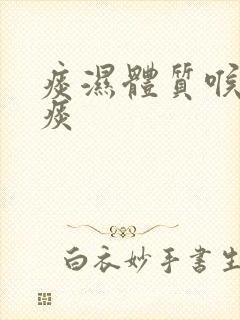 痰濕體質喉
痰
白衣妙手書生